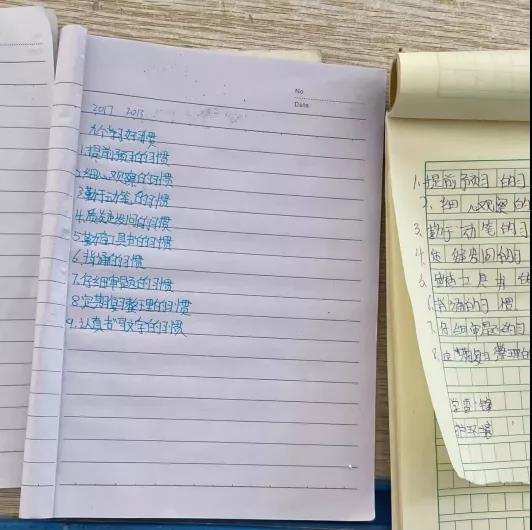 No.
Date
2017 2018
个学习好习惯
1.提前预习的习惯
2.细心观察的习惯
3.勤于动笔的习惯
4.质疑提问的习惯
5.勤查工具书的习惯
6.背诵的习惯
7.仔细审题的习惯
8.定期复习整理的习惯
9.认真书写文字的习惯
1.提前预习的习
2.细心观察的
3.勤于动笔的习
4.质疑提问的习
5.勤查工具书的
6.背诵的习惯
7.仔细审题的习
8.定期复习整理的
学雷锋